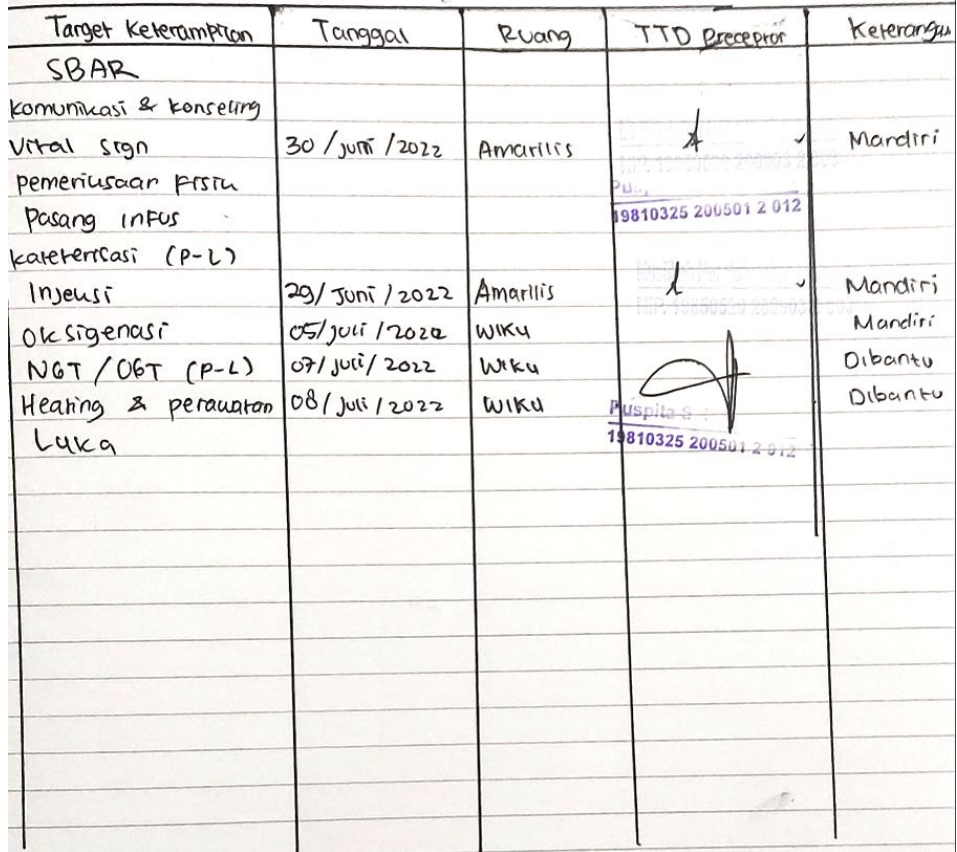 Target Keterampilan Tanggal Ruang TTD Preceptor Keterangan
SBAR
Komunikasi & Konseling
Vital Sign 30/Juni/2022 Amarilis Mandiri
Pemeriksaan Fisik
Pasang Infus 19810325 200501 2 012
Kateterisasi (P-L)
Injeksi 29/Juni/2022 Amarilis Mandiri
Oksigenasi 05/Juli/2022 WIKU Mandiri
NGT/OGT (P-L) 07/Juli/2022 WIKU Dibantu
Heating & perawatan 08/Juli/2022 WIKU Puspita S Dibantu
Luka 19810325 200501 2 012